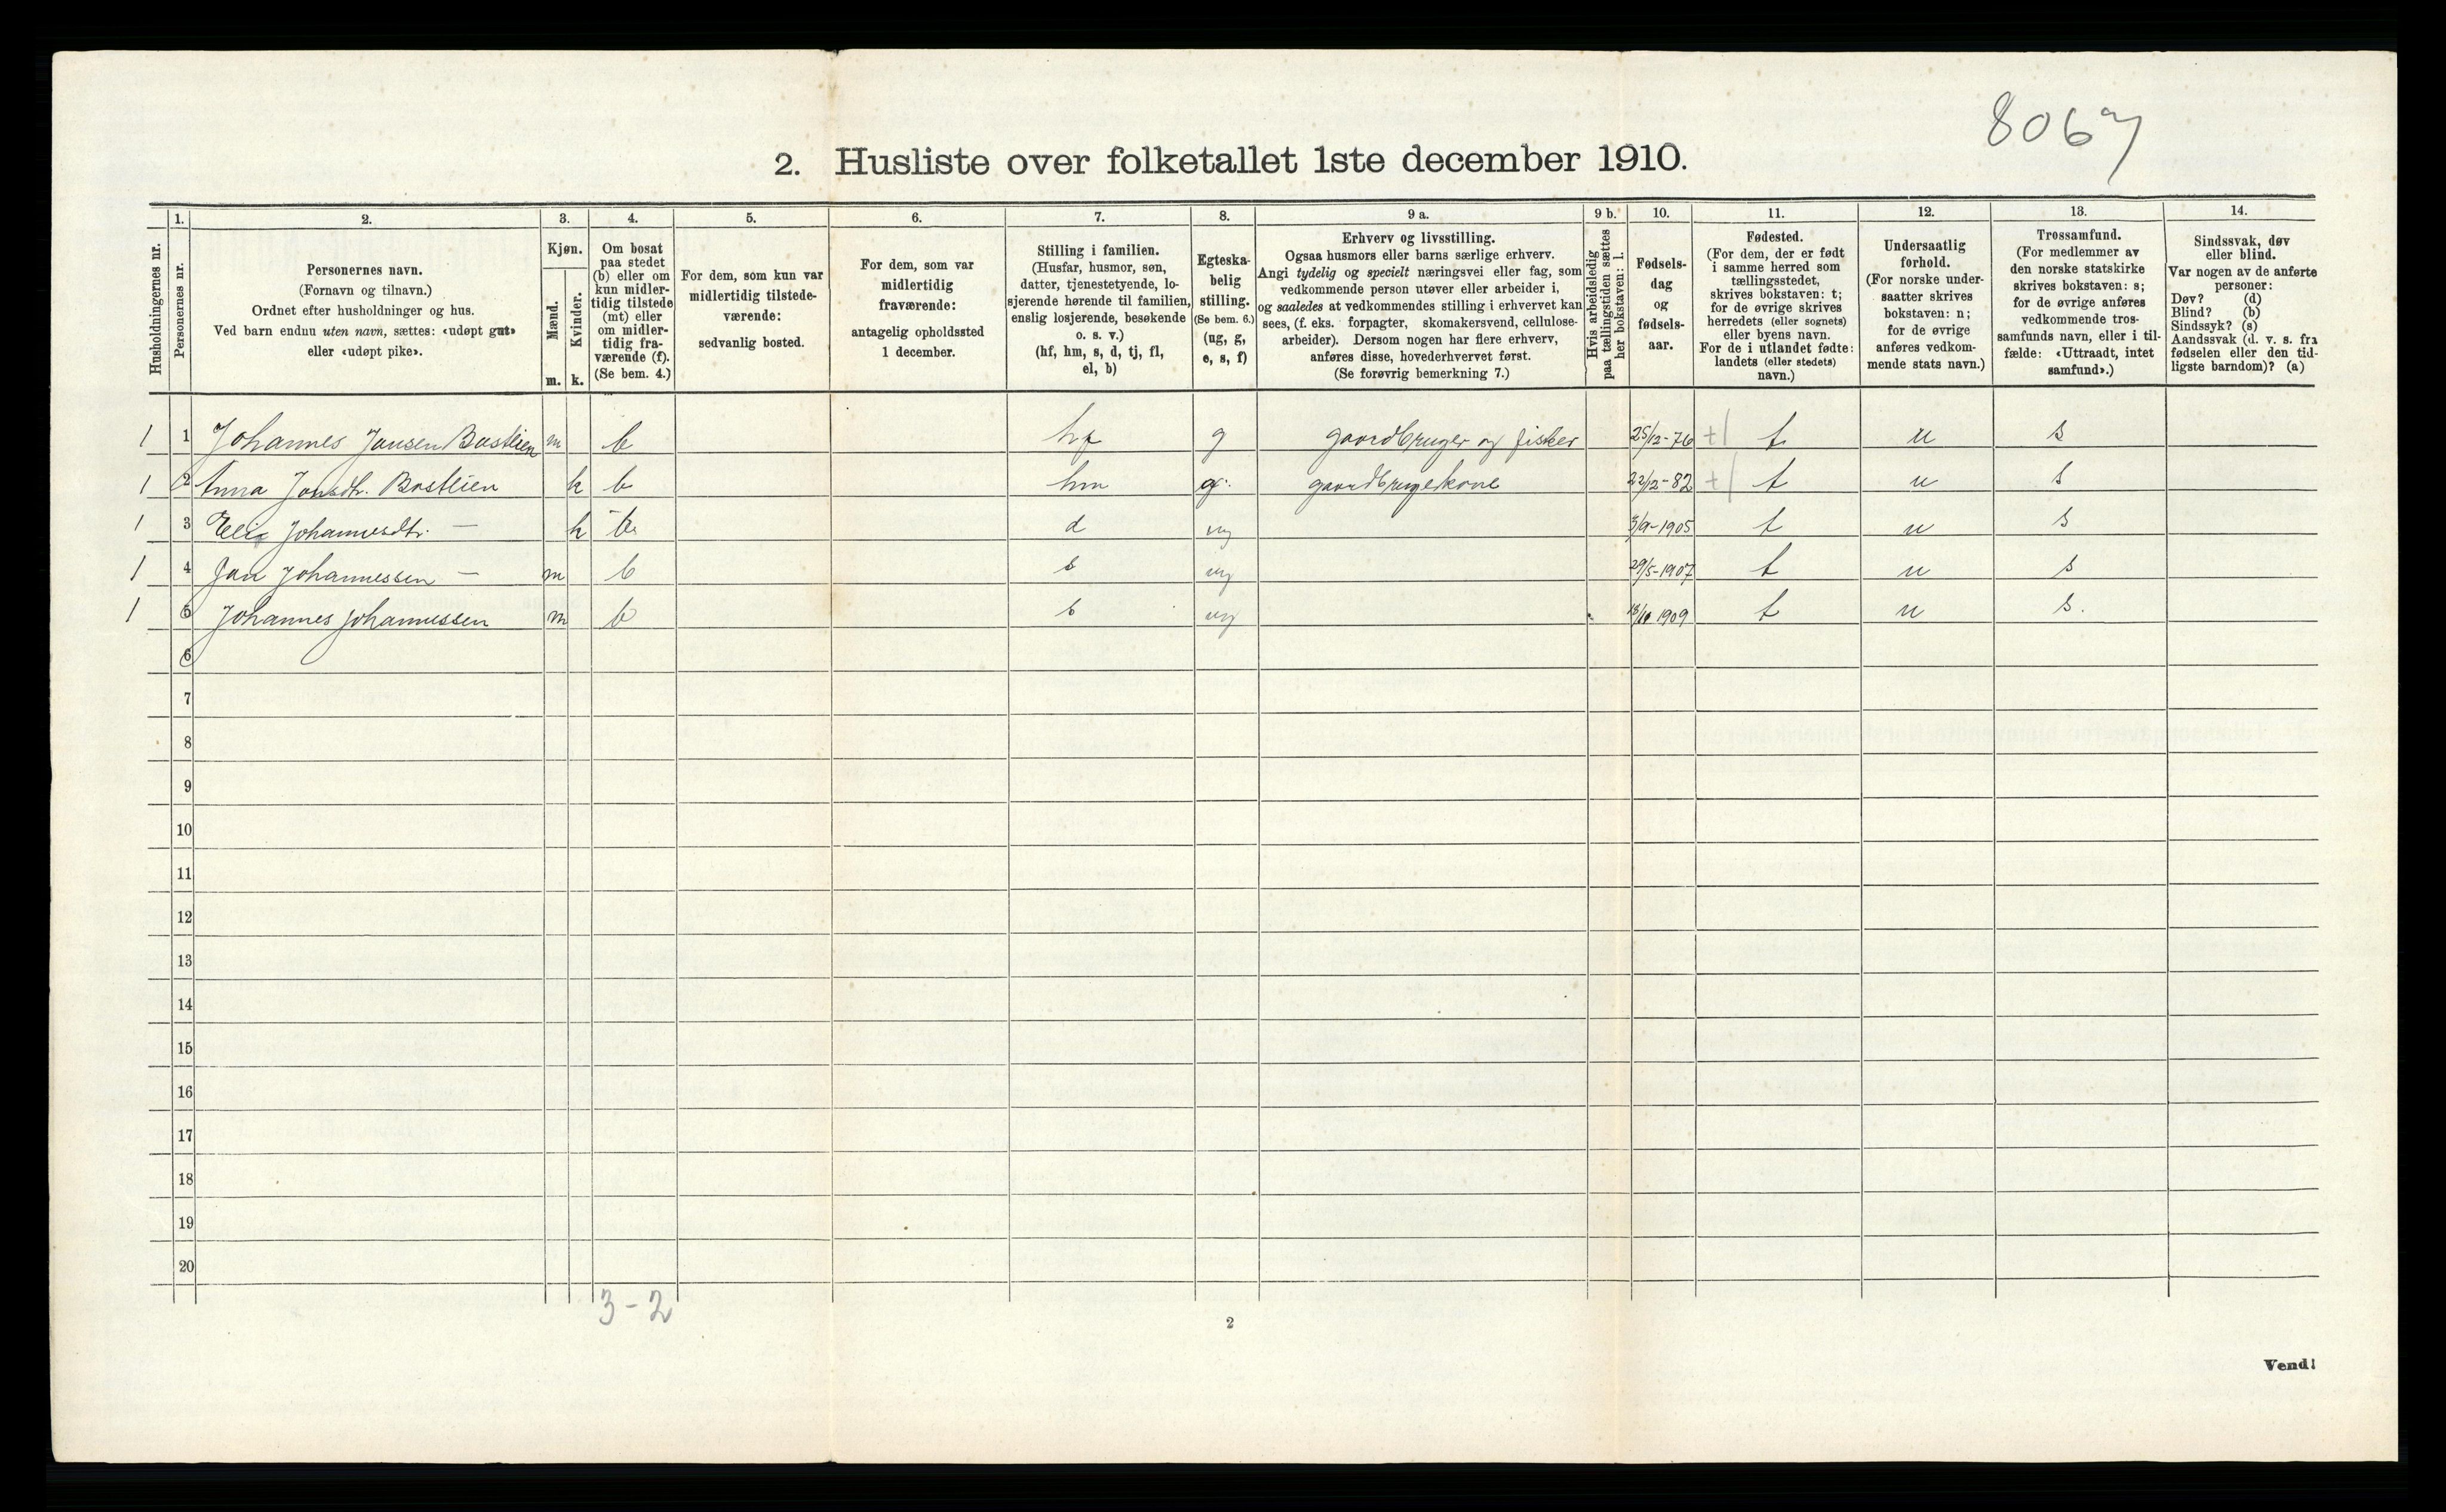 8067
2. Husliste over folketallet 1ste december 1910.
Husholdningernes nr.
1.
Personernes nr.
2.
Personernes navn.
(Fornavn og tilnavn.)
Ordnet efter husholdninger og hus.
Ved barn endnu uten navn, sættes: «udøpt gut»
eller «udøpt pike».
3.
Kjøn.
Mænd.
m.
Kvinder.
k.
4.
Om bosat
paa stedet
(b) eller om
kun midler-
tidig tilstede
(mt) eller
om midler-
tidig fra-
værende (f).
(Se bem. 4.)
5.
For dem, som kun var
midlertidig tilstede-
værende:
sedvanlig bosted.
6.
For dem, som var
midlertidig
fraværende:
antagelig opholdssted
1 december.
7.
Stilling i familien.
(Husfar, husmor, søn,
datter, tjenestetyende, lo-
sjerende hørende til familien,
enslig losjerende, besøkende
o. s. v.)
(hf, hm, s, d, tj, fl,
el, b)
8.
Egteska-
belig
stilling.
(Se bem. 6.)
(ug, g,
e, s, f)
9 a.
Erhverv og livsstilling.
Ogsaa husmors eller barns særlige erhverv.
Angi tydelig og specielt næringsvei eller fag, som
vedkommende person utøver eller arbeider i,
og saaledes at vedkommendes stilling i erhvervet kan
sees, (f. eks. forpagter, skomakersvend, cellulose-
arbeider). Dersom nogen har flere erhverv,
anføres disse, hovederhvervet først.
(Se forøvrig bemerkning 7.)
9 b.
Hvis arbeidsledig
paa tællingstiden sættes
her bokstaven: l.
10.
Fødsels-
dag
og
fødsels-
aar.
11.
Fødested.
(For dem, der er født
i samme herred som
tællingsstedet,
skrives bokstaven: t;
for de øvrige skrives
herredets (eller sognets)
eller byens navn.
For de i utlandet fødte:
landets (eller stedets)
navn.)
12.
Undersaatlig
forhold.
(For norske under-
saatter skrives
bokstaven: n;
for de øvrige
anføres vedkom-
mende stats navn.)
13.
Trossamfund.
(For medlemmer av
den norske statskirke
skrives bokstaven: s;
for de øvrige anføres
vedkommende tros-
samfunds navn, eller i til-
fælde: «Uttraadt, intet
samfund».)
14.
Sindssvak, døv
eller blind.
Var nogen av de anførte
personer:
Døv? (d)
Blind? (b)
Sindssyk? (s)
Aandssvak (d. v. s. fra
fødselen eller den tid-
ligste barndom)? (a)
1 1 Johannes Jansen Bastlien m b hf g gaardbruger og fisker 25/12-76 +| t n s
1 2 Anna Jonsdt. Bastlien k b hm g. gaardbrugerkone 22/12-82 +| t n s
1 3 Johannesdt. — k b. d ug 3/9-1905 t n s
1 4 Jan Johannessen — m b s ug 29/5-1907 t n s
1 5 Johannes Johannessen m b s ug 1909 t n s.
6
7
8
9
10
11
12
13
14
15
16
17
18
19
20
3-2
2
Vend!